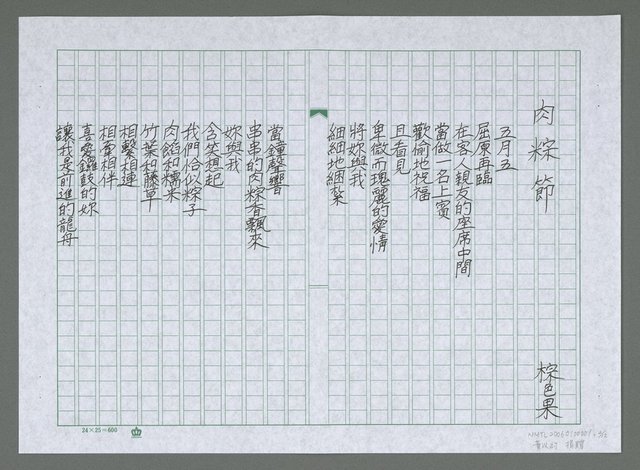 肉粽節
棕色果
五月五
屈原再臨
在客人親友的座席中間
當做一名上賓
歡愉地祝福
且看見
卑微而瑰麗的愛情
將妳與我
細細地綑紮
當鐘聲響
串串的肉粽香飄來
妳與我
含笑想起
我們恰似粽子
肉餡和糯米
竹葉和藤草
相繫相連
相牽相伴
喜愛鑼鼓的妳
讓我是前進的龍舟
24×25=600